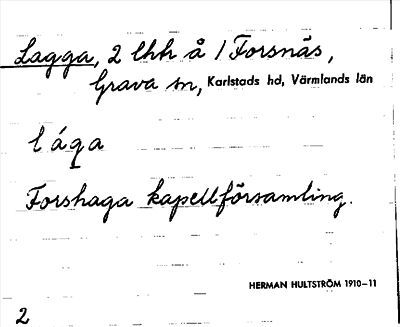 Lagga, 2 lhh å 1 Forsnäs,
Grava sn, Karlstads hd, Värmlands län
lága
Forshaga kapellförsamling.
HERMAN HULTSTRÖM 1910–11
2